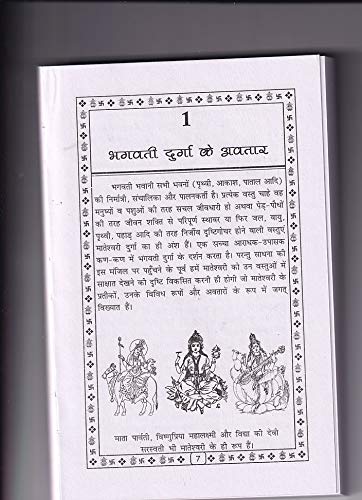 1
भगवती दुर्गा के अवतार
भगवती भवानी सभी भवनों (पृथ्वी, आकाश, पाताल आदि)
की निर्मात्री, संचालिका और पालनकर्ता है। प्रत्येक वस्तु चाहे वह
मनुष्यों व पशुओं की तरह सचल जीवधारी हो अथवा पेड़-पौधों
की तरह जीवन शक्ति से परिपूर्ण स्थावर या फिर जल, वायु,
पृथ्वी, पहाड़ आदि की तरह निर्जीव दृष्टिगोचर होने वाली वस्तुएं
मातेश्वरी दुर्गा का ही अंश हैं। एक सच्चा आराधक-उपासक
कण-कण में भगवती दुर्गा के दर्शन करता है। परन्तु साधना की
इस मंजिल पर पहुँचने के पूर्व हमें मातेश्वरी को उन वस्तुओं में
साक्षात देखने की दृष्टि विकसित करनी ही होगी जो मातेश्वरी के
प्रतीकों, उनके विविध रूपों और अवतारों के रूप में जगत्
विख्यात हैं।
माता पार्वती, विष्णुप्रिया महालक्ष्मी और विद्या की देवी
सरस्वती भी मातेश्वरी के ही रूप हैं।
7